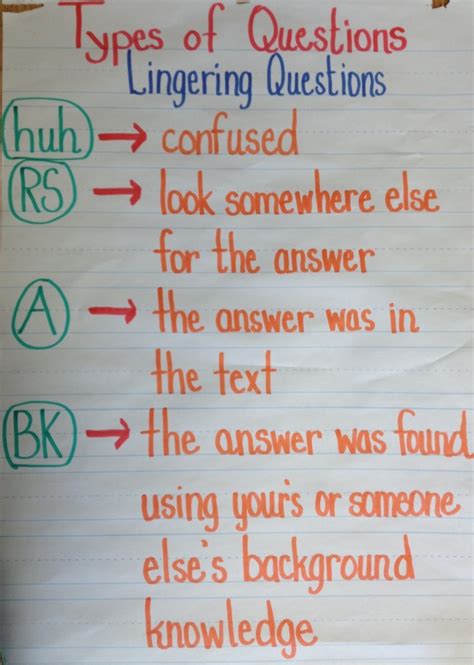 Types of Questions
Lingering Questions
huh → confused
RS → look somewhere else
for the answer
A → the answer was in
the text
BK → the answer was found
using your's or someone
else's background
knowledge